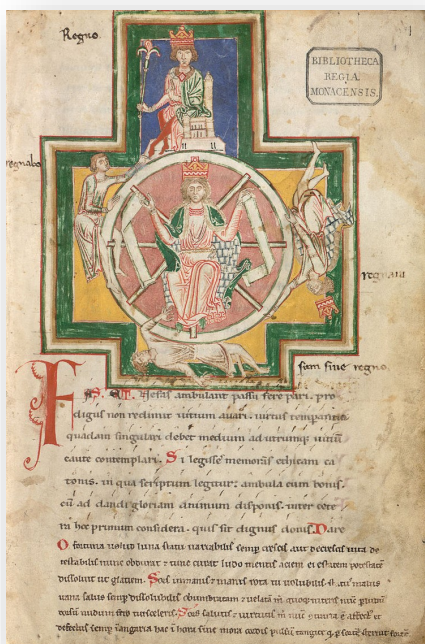 Regno.
BIBLIOTHECA
REGIA
MONACENSIS.
regnabo
regnaui
sum sine regno.
Fas et Nefas ambulant passu fere pari. pro
digus non redimit uitium auari. uirtus temperantia
quadam singulari debet medium ad utrumque uitiũ
caute contemplari. Si legisse memoras ethicam ca
tonis. in qua scriptum legitur. ambula cum bonis.
cũ ad dandi gloriam animum disponis. inter cete
ra hec primum considera. quis sit dignus donis. Dare
O fortuna uelut luna statu uariabilis semp crescis. aut decrescis uita de
testabilis nunc obdurat & tunc curat ludo mentis aciem egestatem potestatẽ
dissoluit ut glaciem. Sors inmanis & inanis rota tu uolubilis status malus
uana salus semp dissolubilis obumbratam & uelatã m quoque niteris nũc p ludũ
dorsũ nudum fero tui sceleris. Sors salutis & uirtutis m nũc 9traria ẽ affect &
defectus semp ĩ angaria hac ĩ hora sine mora